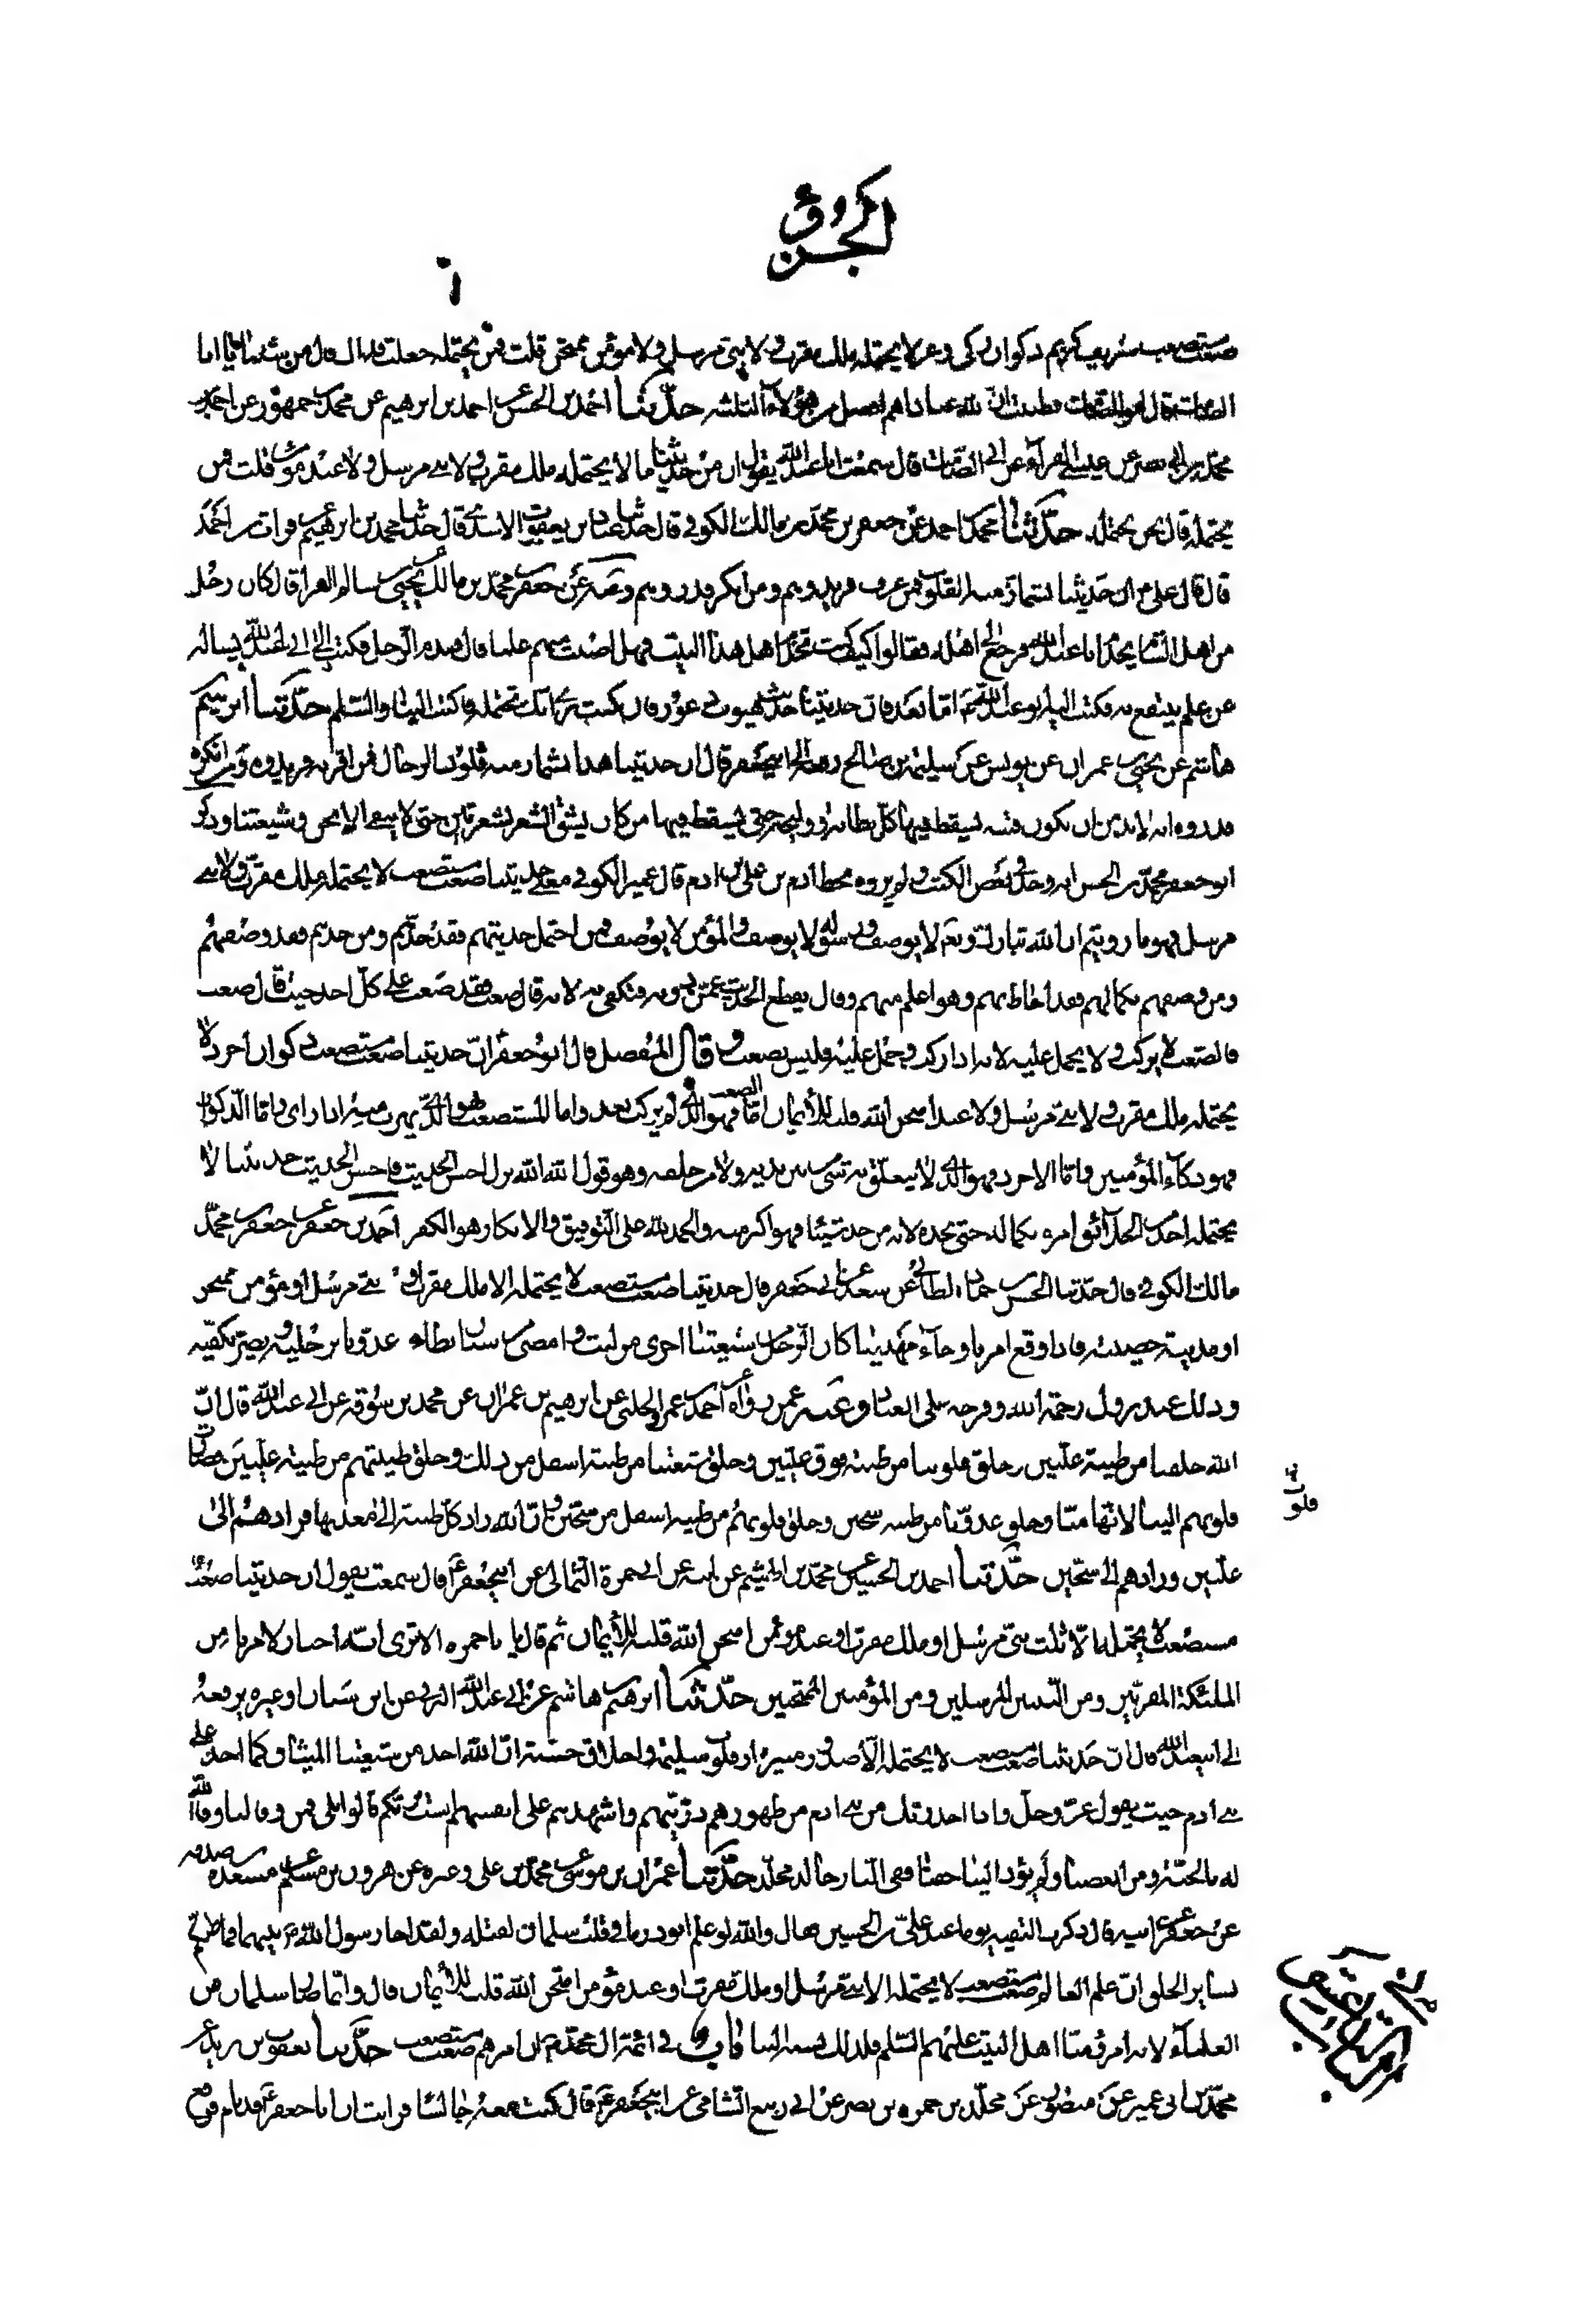 الجزو
مستصعب شريف كريم ذكوان ذكي وعر لا يحتمله ملك مقرب ولا نبي مرسل ولا مؤمن ممتحن قلت فمن يحتمله جعلت فداك قال من شئنا يا ابا
الصامت قال ابو الصامت فظننت ان لله عبادا هم افضل من هؤلاء الثلثه حدثنا احمد بن الحسن عن احمد بن ابرهيم عن محمد بن جمهور عن احمد بن
محمد بن ابي نصر عن عيسى الفرآء عن ابي الصامت قال سمعت ابا عبد الله يقول ان من حديثنا ما لا يحتمله ملك مقرب ولا نبي مرسل ولا عبد مؤمن قلت فمن
يحتمله قال نحن نحتمله حدثنا محمد بن احمد عن جعفر بن محمد بن مالك الكوفي قال حدثنا عباد بن يعقوب الاسدي قال حدثنا محمد بن ابرهيم عن فرات بن احمد
قال قال علي ان حديثنا تشمأز منه القلوب فمن عرف فزيدوهم ومن انكر فذروهم وعنه عن جعفر بن محمد بن مالك عن يحيى بن سالم الفرا قال كان رجل
من اهل الشام يخدم ابا عبد الله فرجع الى اهله فقالوا كيف كنت تخدم اهل هذا البيت فهل اصبت منهم علما قال فندم الرجل فكتب الى ابي عبد الله يساله
عن علم ينتفع به فكتب اليه ابو عبد الله اما بعد فان حديثنا حديث هيوب ذعور فان كنت ترى انك تحتمله فاكتب الينا والسلم حدثنا ابرهيم بن
هاشم عن يحيى بن عمران عن يونس عن سليمن بن صالح رفعه الى ابي جعفر قال ان حديثنا هذا تشمأز منه قلوب الرجال فمن اقر به فزيدوه ومن انكره
فذروه انه لا بد من ان تكون فتنه يسقط فيها كل بطانه ووليجه حتى يسقط فيها من كان يشق الشعر بشعرتين حتى لا يبقى الا نحن وشيعتنا وذكر
ابو جعفر محمد بن الحسن انه وجد في بعض الكتب ولم يروه بخط ادم بن علي بن ادم قال عمير الكوفي معنى حديثنا صعب مستصعب لا يحتمله ملك مقرب ولا نبي
مرسل فهو ما رويتم ان الله تبارك وتعالى لا يوصف ورسوله لا يوصف والمؤمن لا يوصف فمن احتمل حديثهم فقد حدهم ومن حدهم فقد وصفهم
ومن وصفهم بكمالهم فقد احاط بهم وهو اعلم منهم وقال يقطع الحديث عمن دونه فتكتفي به لانه قال صعب فقد صعب على كل احد حيث قال صعب
فالصعب لا يركب ولا يحمل عليه لانه اذا ركب وحمل عليه فليس بصعب وقال المفضل قال ابو جعفر ان حديثنا صعب مستصعب ذكوان اجرد لا
يحتمله ملك مقرب ولا نبي مرسل ولا عبد امتحن الله قلبه للايمان اما الصعب فهو الذي لم يركب بعد واما المستصعب فهو الذي يهرب منه اذا راى واما الذكوان
فهو ذكآء المؤمنين واما الاجرد فهو الذي لا يتعلق به شئ من بين يديه ولا من خلفه وهو قول الله الله نزل احسن الحديث فاحسن الحديث حديثنا لا
يحتمل احد من الخلائق امره بكماله حتى يحده لانه من حد شيئا فهو اكبر منه والحمد لله على التوفيق والانكار هو الكفر احمد بن جعفر عن جعفر بن محمد بن
مالك الكوفي قال حدثنا الحسن بن حماد الطائي عن سعد عن ابي جعفر قال حديثنا صعب مستصعب لا يحتمله الا ملك مقرب او نبي مرسل او مؤمن ممتحن
او مدينة حصينة فاذا وقع امرنا وجآء مهدينا كان الرجل من شيعتنا اجرى من ليث وامضى من سنان يطاء عدونا برجليه ويضربه بكفيه
وذلك عند نزول رحمة الله وفرجه على العباد
الله خلقنا من طينة عليين وخلق قلوبنا من طينة فوق عليين وخلق شيعتنا من طينة اسفل من ذلك وخلق طينتهم من طينة عليين فصارت
قلوبهم الينا لانها منا وخلق عدونا من طينه سجين وخلق قلوبهم من طينه اسفل من سجين وان الله راد كل طينه الى معدنها فرادهم الى
عليين ورادهم الى سجين حدثنا احمد بن الحسين عن محمد بن الهيثم عن ابيه عن ابي حمزة الثمالي عن ابي جعفر قال سمعته يقول ان حديثنا صعب
مستصعب لا يحتمله الا ثلث نبي مرسل او ملك مقرب او عبد مؤمن امتحن الله قلبه للايمان ثم قال يا با حمزه الا ترى انه اختار لامرنا من
الملئكة المقربين ومن النبيين المرسلين ومن المؤمنين الممتحنين حدثنا ابرهيم بن هاشم عن ابي عبد الله البرقي عن ابن سنان او غيره يرفعه
الى ابي عبد الله قال ان حديثنا صعب مستصعب لا يحتمله الا صدور منيرة او قلوب سليمه واخلاق حسنة ان الله اخذ من شيعتنا الميثاق كما اخذ على
بني ادم حيث يقول عز وجل واذ اخذ ربك من بني ادم من ظهورهم ذريتهم واشهدهم على انفسهم الست بربكم قالوا بلى فمن وفا لنا وفا الله
له بالجنة ومن ابغضنا ولم يؤد الينا حقنا ففي النار خالد مخلد حدثنا عمران بن موسى عن محمد بن علي وغيره عن هرون بن مسلم عن مسعده بن صدقه
عن جعفر عن ابيه قال ذكرت التقيه يوما عند علي بن الحسين فقال والله لو علم ابو ذر ما في قلب سلمان لقتله ولقد اخا رسول الله بينهما فما ظنكم
بساير الخلق ان علم العالم صعب مستصعب لا يحتمله الا نبي مرسل او ملك مقرب او عبد مؤمن امتحن الله قلبه للايمان قال وانما صار سلمان من
العلمآء لانه امرؤ منا اهل البيت عليهم السلم فلذلك نسبه الينا باب في ائمة ال محمد ان امرهم صعب مستصعب حدثنا يعقوب بن يزيد عن
محمد بن ابي عمير عن منصور عن مخلد بن حمزه بن نصر عن ابي ربيع الشامي عن ابي جعفر قال كنت معه جالسا فرايت ان ابا جعفر قد نام فرفع
قلوب